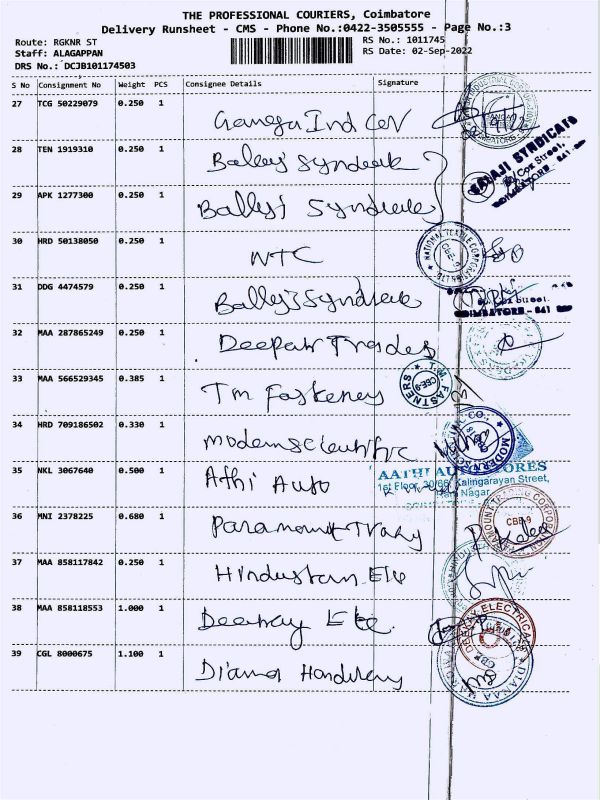 THE PROFESSIONAL COURIERS, Coimbatore
Delivery Runsheet - CMS - Phone No.:0422-3505555 - Page No.:3
Route: RGKNR ST
RS No.: 1011745
Staff: ALAGAPPAN
RS Date: 02-Sep-2022
DRS No.: DCJB101174503
S No Consignment No Weight PCS Consignee Details Signature
27 TCG 50229079 0.250 1
28 TEN 1919310 0.250 1 Balleyi Syndicate
BALAJI SYNDICATE
Cox Street,
COIMBATORE - 641
29 APK 1277300 0.250 1 Ballyi Syndicate
30 HRD 50138050 0.250 1 NTC
NATIONAL TEXTILE CORPORATION LTD
CBE-9
31 DDG 4474579 0.250 1 Ballyi Syndicate
COIMBATORE - 641
32 MAA 287865249 0.250 1 Deepak Trades
33 MAA 566529345 0.385 1 Tm Fasteners
T.M. FASTNERS
CBE-9
34 HRD 709186502 0.330 1 modern scientific
MODERN
CO.,
35 NKL 3067640 0.500 1 Athi Auto
AATHI AUTO STORES
1st Floor, 30/66, Kalingarayan Street,
Ram Nagar,
36 MNI 2378225 0.680 1 Paramount Trady
PARAMOUNT TRADING CORPORATION
CBE-9
37 MAA 858117842 0.250 1 Hindustan Ele
38 MAA 858118553 1.000 1 Deeray Ele
ELECTRICAL
39 CGL 8000675 1.100 1 Diana Hardware
DIANAA HARDWARE